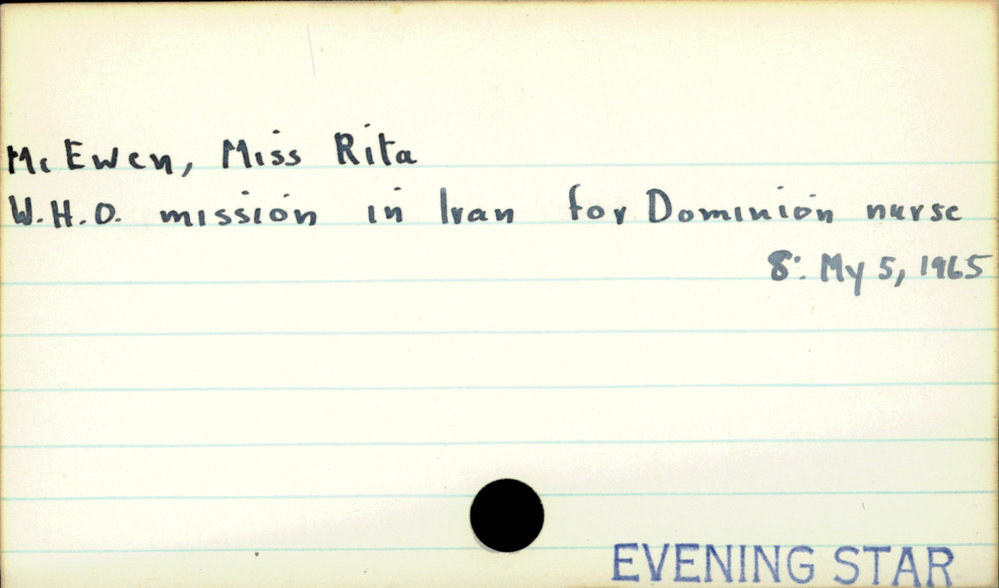 McEwen, Miss Rita
W.H.O. mission in Iran for Dominion nurse
8: My 5, 1965
EVENING STAR